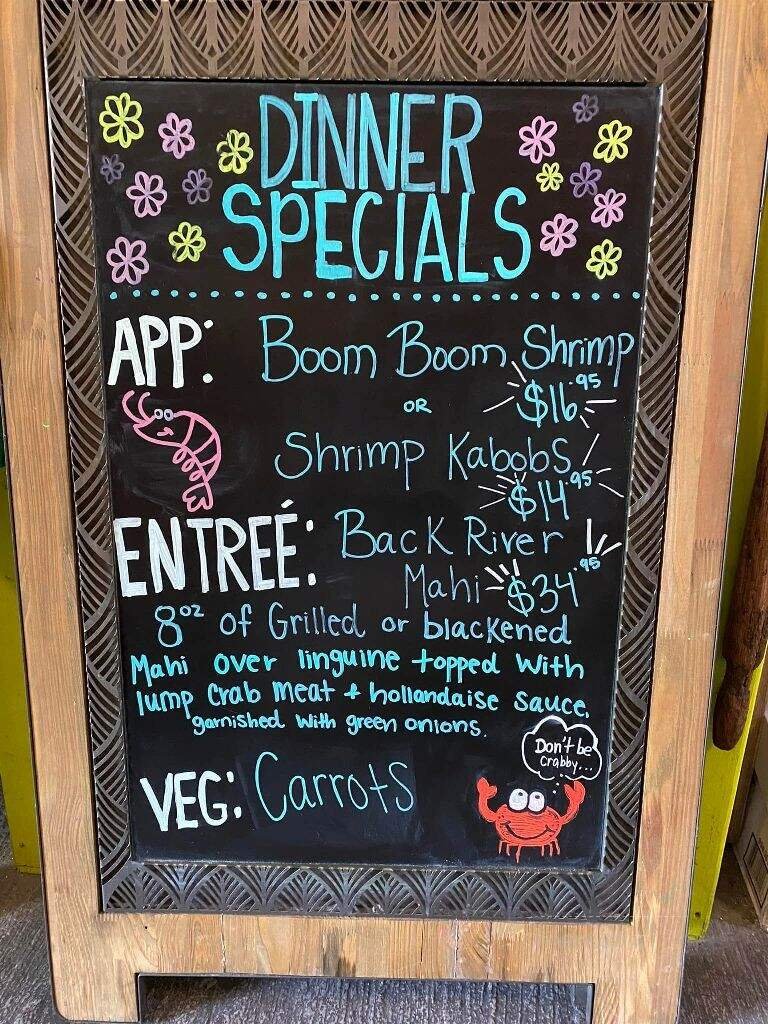 DINNER
SPECIALS
APP: Boom Boom Shrimp
$16.95
OR
Shrimp Kabobs
$14.95
ENTREÉ: Back River
Mahi $34.95
8oz of Grilled or blackened
Mahi over linguine topped with
lump crab meat + hollandaise sauce.
garnished with green onions.
Don't be
crabby...
VEG: Carrots